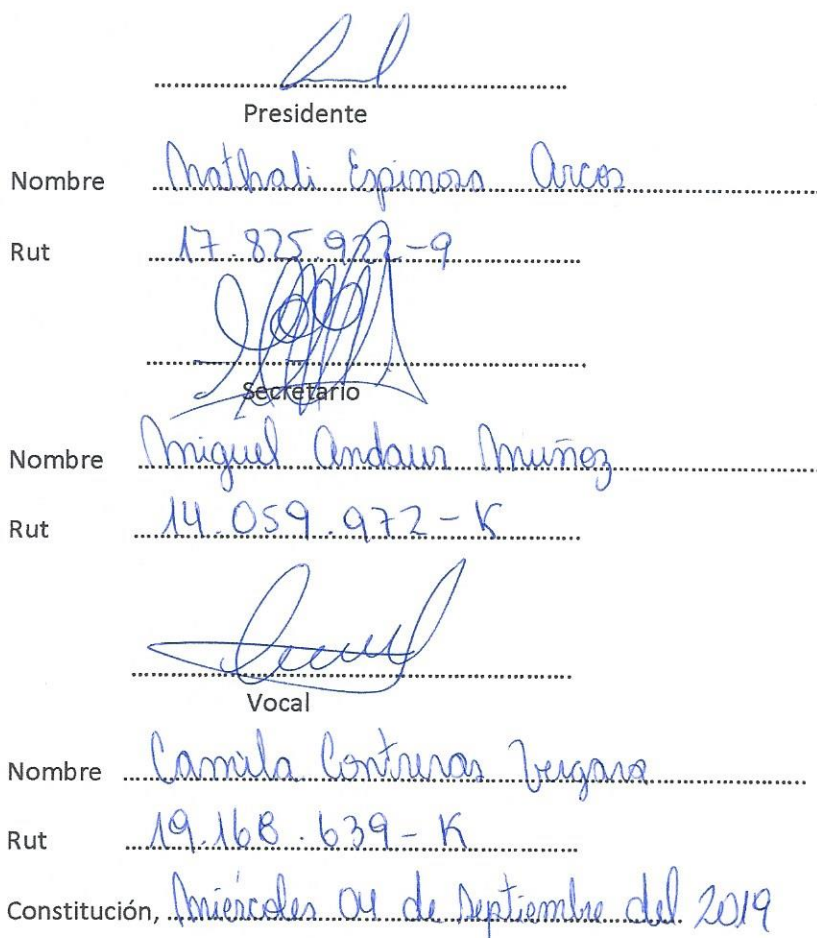 Presidente
Nombre Nathali Espinoza Arcos
Rut 17.825.922-9
Secretario
Nombre Miguel Andaur Muñoz
Rut 14.059.972-K
Vocal
Nombre Camila Contreras Vergara
Rut 19.168.639-K
Constitución, Miércoles 04 de Septiembre del 2019